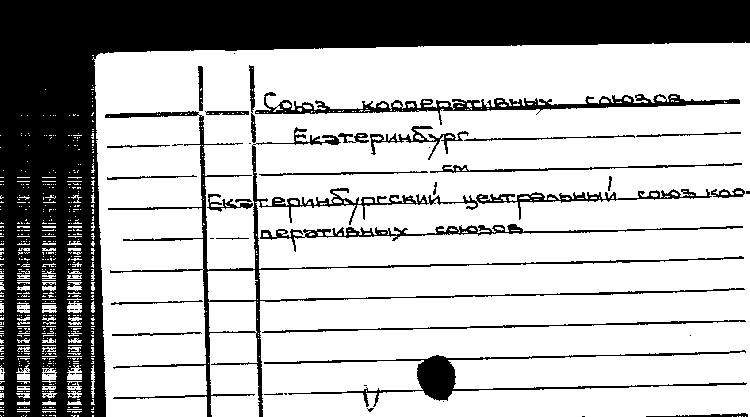 Союз кооперативных союзов.
Екатеринбург.
см
Екатеринбургский центральный союз коо-
перативных союзов